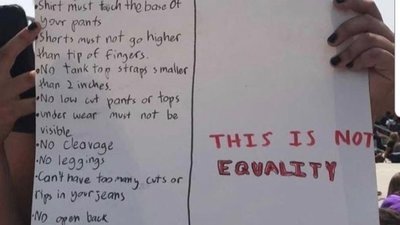 •Shirt must touch the base of
your pants
•Shorts must not go higher
than tip of fingers.
•No Tank top straps smaller
than 2 inches.
•No low cut pants or tops
•under wear must not be
visible
•No Cleavage
•No leggings
•Can't have too many cuts or
rips in your jeans
•No open back
THIS IS NOT
EQUALITY